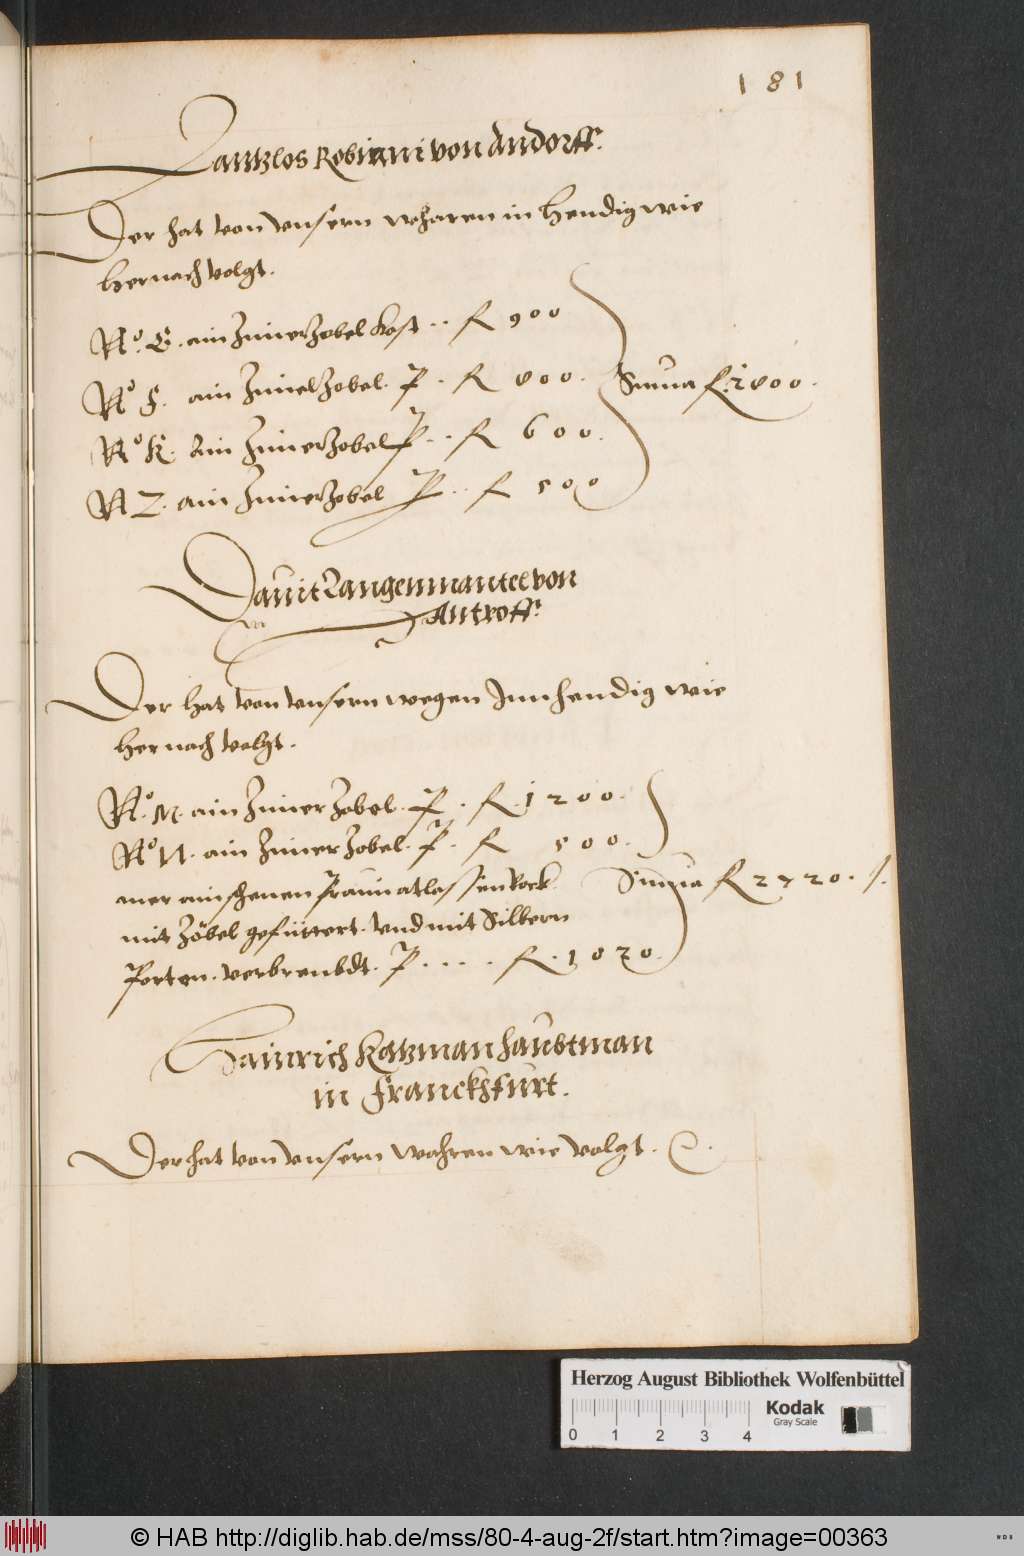 181
Lantzlos Robiani von Andorff.
Der hat von vnsern wharen in hendig wie
hernach volgt.
No. E. ain Zimer Zobel kost .. fl 900
No F. ain Zimer Zobel. P . fl 800. Suma fl. 2800.
No K. Ain Zimer Zobel P .. fl 600.
N Z. ain Zimer Zobel P .. fl 500
Dauit Langenmantel von
Antroff.
Der hat von vnsern wegen Innhendig wie
hernach volgt.
No. M. ain Zimer Zobel. P . fl. 1200.
No N. ain Zimer Zobel. P. fl 500.
mer ain schenen Praun atlassen Rock Suma fl 2720. /.
mit Zöbel gefüttert. vnd mit Silbern
Porten. verbrembdt. P .... fl. 1020.
Hainrich Katzman haubtman
in Franckhfurt.
Der hat von vnsern wahren wie volgt.
Herzog August Bibliothek Wolfenbüttel
0 1 2 3 4
Kodak
Gray Scale
© HAB http://diglib.hab.de/mss/80-4-aug-2f/start.htm?image=00363